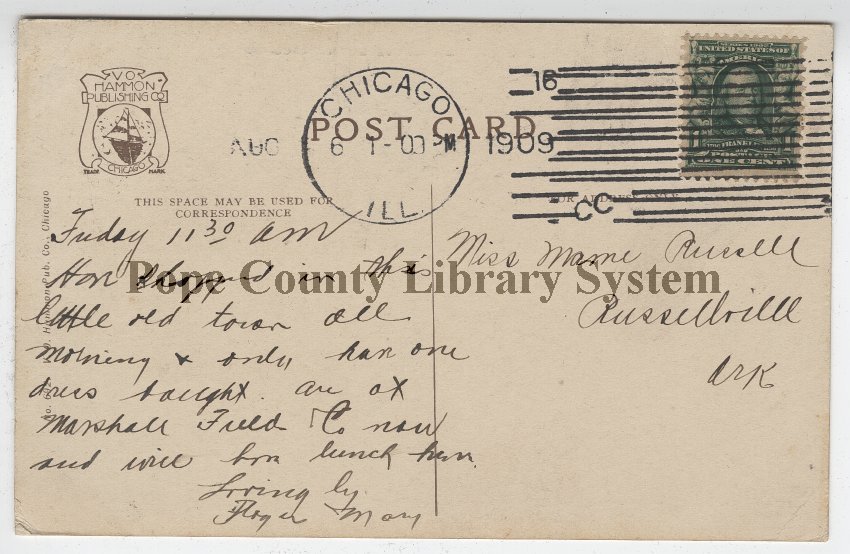 V.O.
HAMMON
PUBLISHING CO
CHICAGO
TRADE MARK
CHICAGO
ILL
AUG 6 1-00 PM 1909
16
CC
POST CARD
SERIES 1902
UNITED STATES OF
AMERICA
FRANKLIN
POSTAGE
ONE CENT
THIS SPACE MAY BE USED FOR
CORRESPONDENCE
FOR ADDRESS ONLY
Hammon Pub. Co., Chicago
Friday 11 30 am
Hav shopped in this
little old town all
morning & only hav one
dress bought. are at
Marshall Field Co now
and will hav lunch here.
Loving ly
Mary
Miss Mame Russell
Russellville
Ark
Pope County Library System